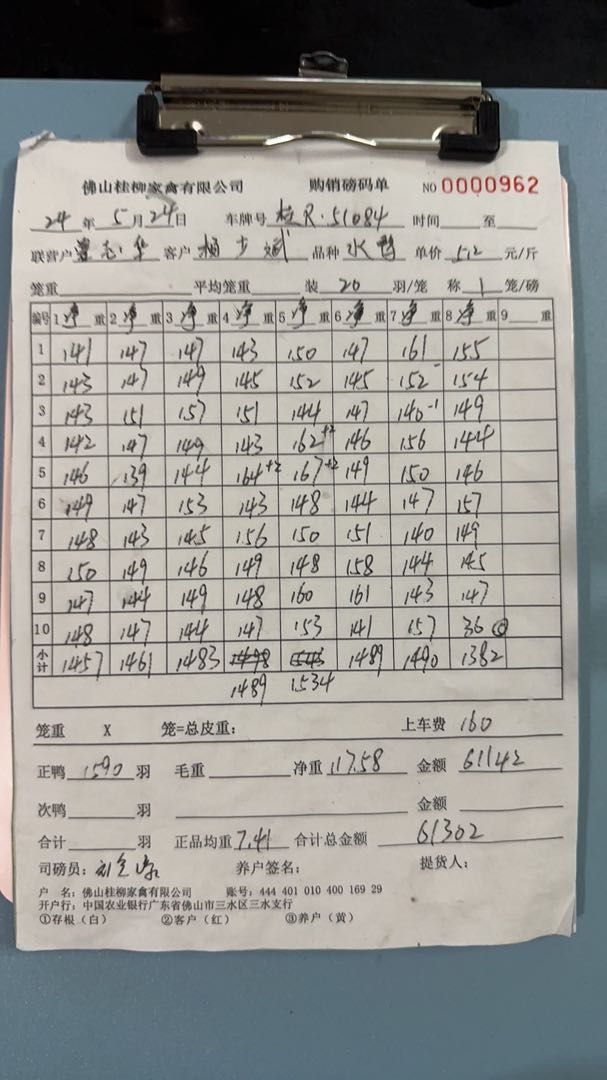 佛山桂柳家禽有限公司 购销磅码单 NO 0000962
24 年 5 月 24 日 车牌号 桂R·51084 时间 至
联营户 客户 杨 品种 水鸭 单价 5.2 元/斤
笼重 平均笼重 装 20 羽/笼 称 1 笼/磅
编号 1 净 重 2 净 重 3 净 重 4 净 重 5 净 重 6 净 重 7 净 重 8 净 重 9 重
1 141 147 147 143 150 147 161 155
2 143 147 149 145 152 145 152 154
3 143 151 157 151 144 147 140-1 149
4 142 147 149 143 162+2 146 156 144
5 146 139 144 164+2 167+2 149 150 146
6 149 147 153 143 148 144 147 157
7 148 143 145 156 150 151 140 149
8 150 149 146 149 148 158 144 145
9 147 144 149 148 160 161 143 147
10 148 147 144 147 153 141 157 36
小计 1457 1461 1483 1489 1490 1382
1489 1534
笼重 X 笼=总皮重: 上车费 160
正鸭 1590 羽 毛重 净重 11758 金额 61142
次鸭 羽 金额
合计 羽 正品均重 7.41 合计总金额 61302
司磅员: 养户签名: 提货人:
户 名: 佛山桂柳家禽有限公司 账号: 444 401 010 400 169 29
开户行: 中国农业银行广东省佛山市三水区三水支行
①存根（白） ②客户（红） ③养户（黄）